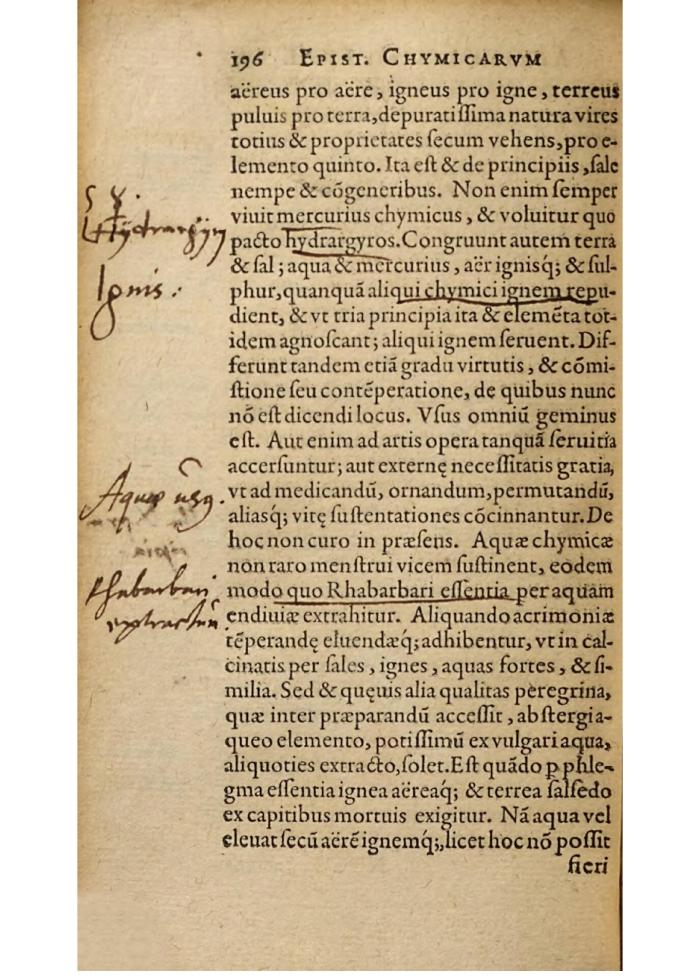 196 EPIST. CHYMICARVM
aëreus pro aëre, igneus pro igne, terreus
puluis pro terra, depuratiſſima natura vires
totius & proprietates ſecum vehens, pro e-
lemento quinto. Ita eſt & de principiis, ſale
nempe & cōgeneribus. Non enim ſemper
viuit mercurius chymicus, & voluitur quo
Hydrargyrꝰ
pacto hydrargyros. Congruunt autem terra
& ſal; aqua & mercurius, aër ignisq́; & ſul-
Ignis.
phur, quanquā aliqui chymici ignem repu-
dient, & vt tria principia ita & elemēta tot-
idem agnoſcant; aliqui ignem ſeruent. Dif-
ferunt tandem etiā gradu virtutis, & cōmi-
ſtione ſeu contēperatione, de quibus nunc
nō eſt dicendi locus. Vſus omniū geminus
eſt. Aut enim ad artis opera tanquā ſeruitia
accerſuntur; aut externę neceſſitatis gratia,
Aquæ
vt ad medicandū, ornandum, permutandū,
aliasq́; vitę ſuſtentationes cōcinnantur. De
hoc non curo in præſens. Aquæ chymicæ
non raro menſtrui vicem ſuſtinent, eodem
Rhabarbari
modo quo Rhabarbari eſſentia per aquam
extractū.
endiuiæ extrahitur. Aliquando acrimoniæ
tēperandę eluendæq́; adhibentur, vt in cal-
cinatis per ſales, ignes, aquas fortes, & ſi-
milia. Sed & quęuis alia qualitas peregrina,
quæ inter præparandū acceſſit, abſtergi a-
queo elemento, potiſſimū ex vulgari aqua,
aliquoties extracto, ſolet. Eſt quādo ꝑ phle-
gma eſſentia ignea aëreaq́; & terrea ſalſedo
ex capitibus mortuis exigitur. Nā aqua vel
eleuat ſecū aërē ignemq́;, licet hoc nō poſſit
fieri